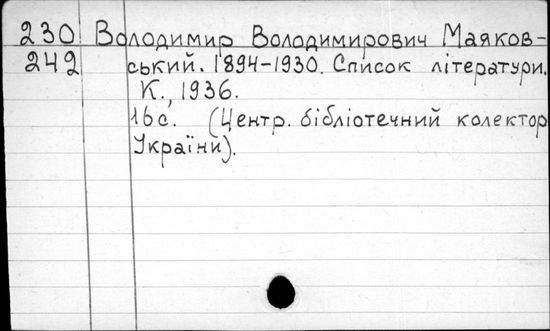 230 Володимир Володимирович Маяков-
242 ський. 1894-1930. Список літератури.
К., 1936.
16с. (Центр. бібліотечний колектор
України).